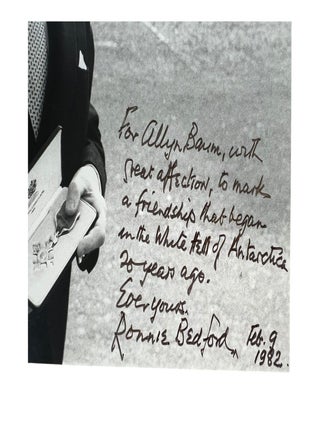 For Allyn Baum, with
great affection, to mark
a friendship that began
in the White Hell of Antarctica
20 years ago.
Ever yours.
Ronnie Bedford. Feb. 9
1982.